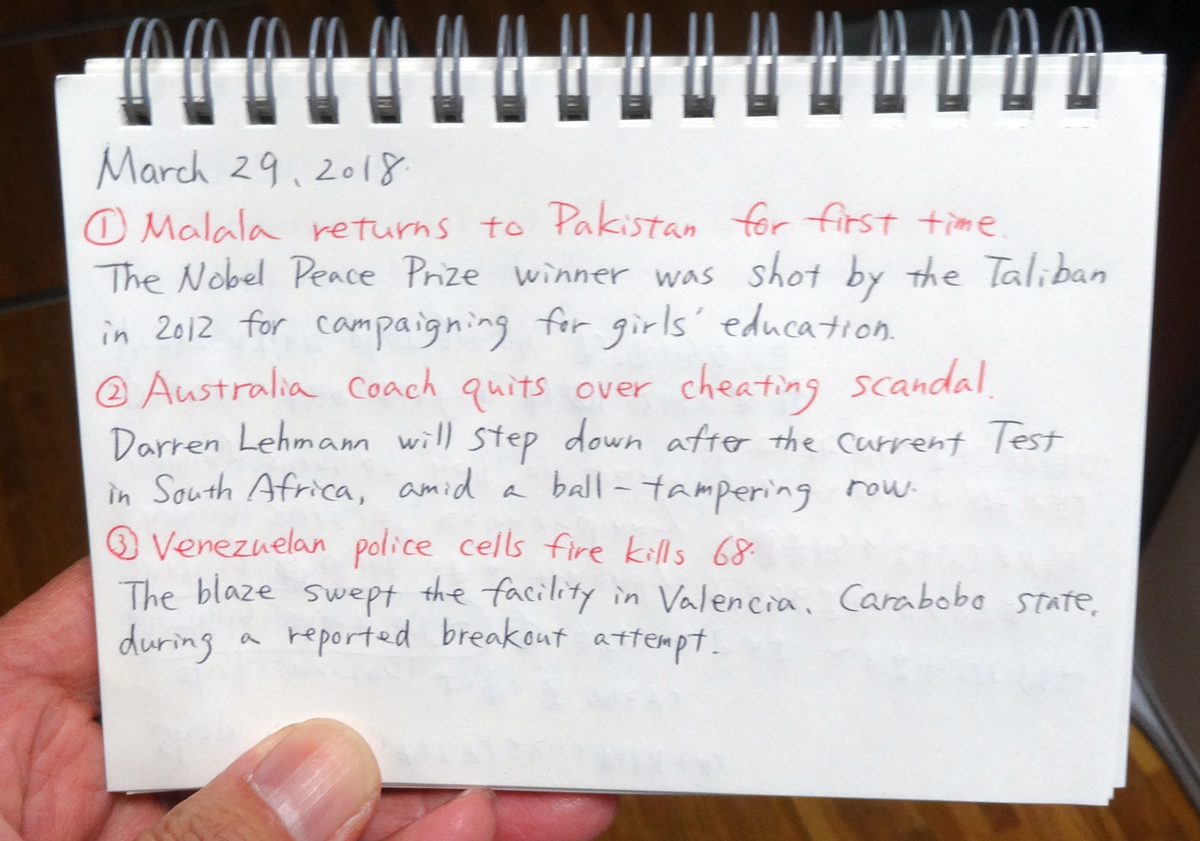 March 29, 2018.
① Malala returns to Pakistan for first time.
The Nobel Peace Prize winner was shot by the Taliban
in 2012 for campaigning for girls' education.
② Australia coach quits over cheating scandal.
Darren Lehmann will step down after the current Test
in South Africa, amid a ball-tampering row.
③ Venezuelan police cells fire kills 68.
The blaze swept the facility in Valencia, Carabobo state,
during a reported breakout attempt.